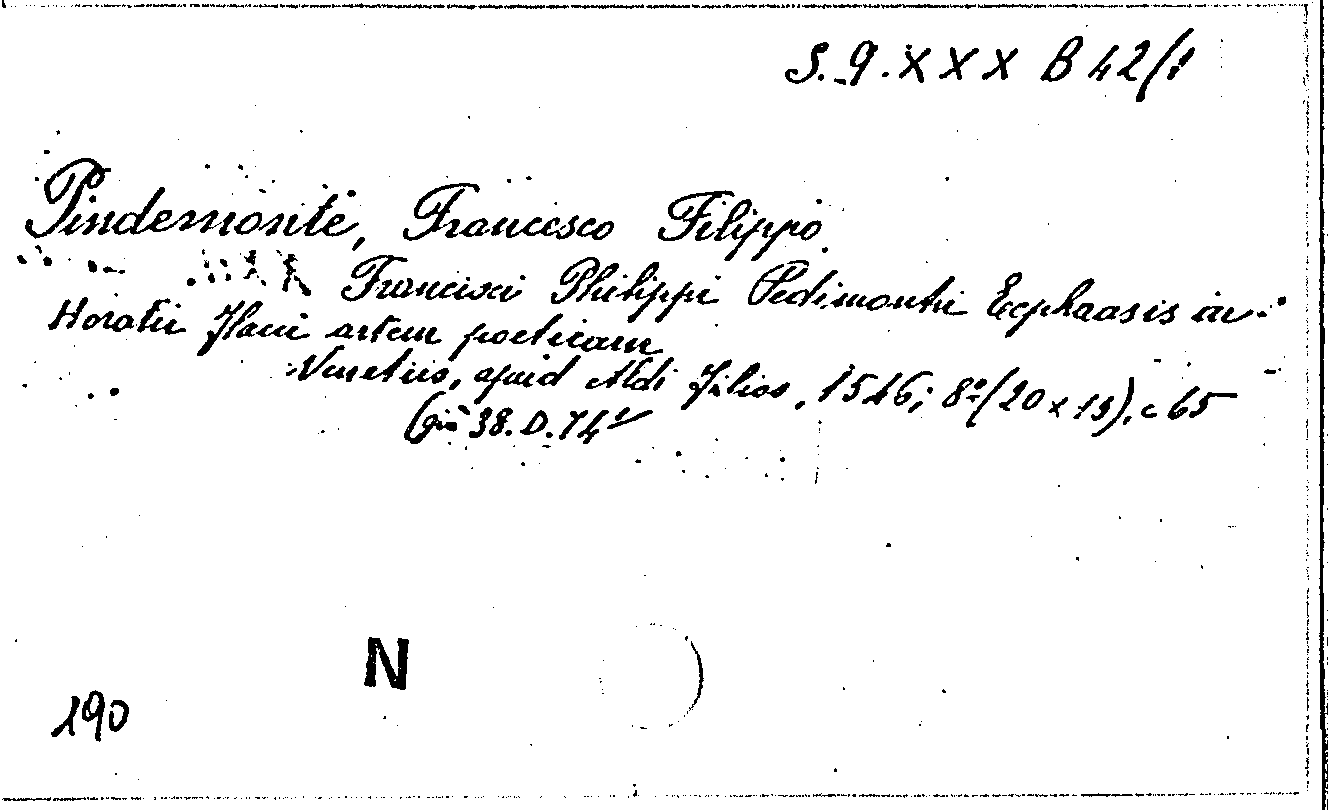 S.Q.XXX B 42/1
Pindemonte, Francesco Filippo
Francisci Philippi Pedimontii Ecphrasis in
Horatii Flacci artem poeticam
Venetiis, apud Aldi Filios, 1546; 8º (20 x 15), c 65
(già 38.D.74¹
N
190